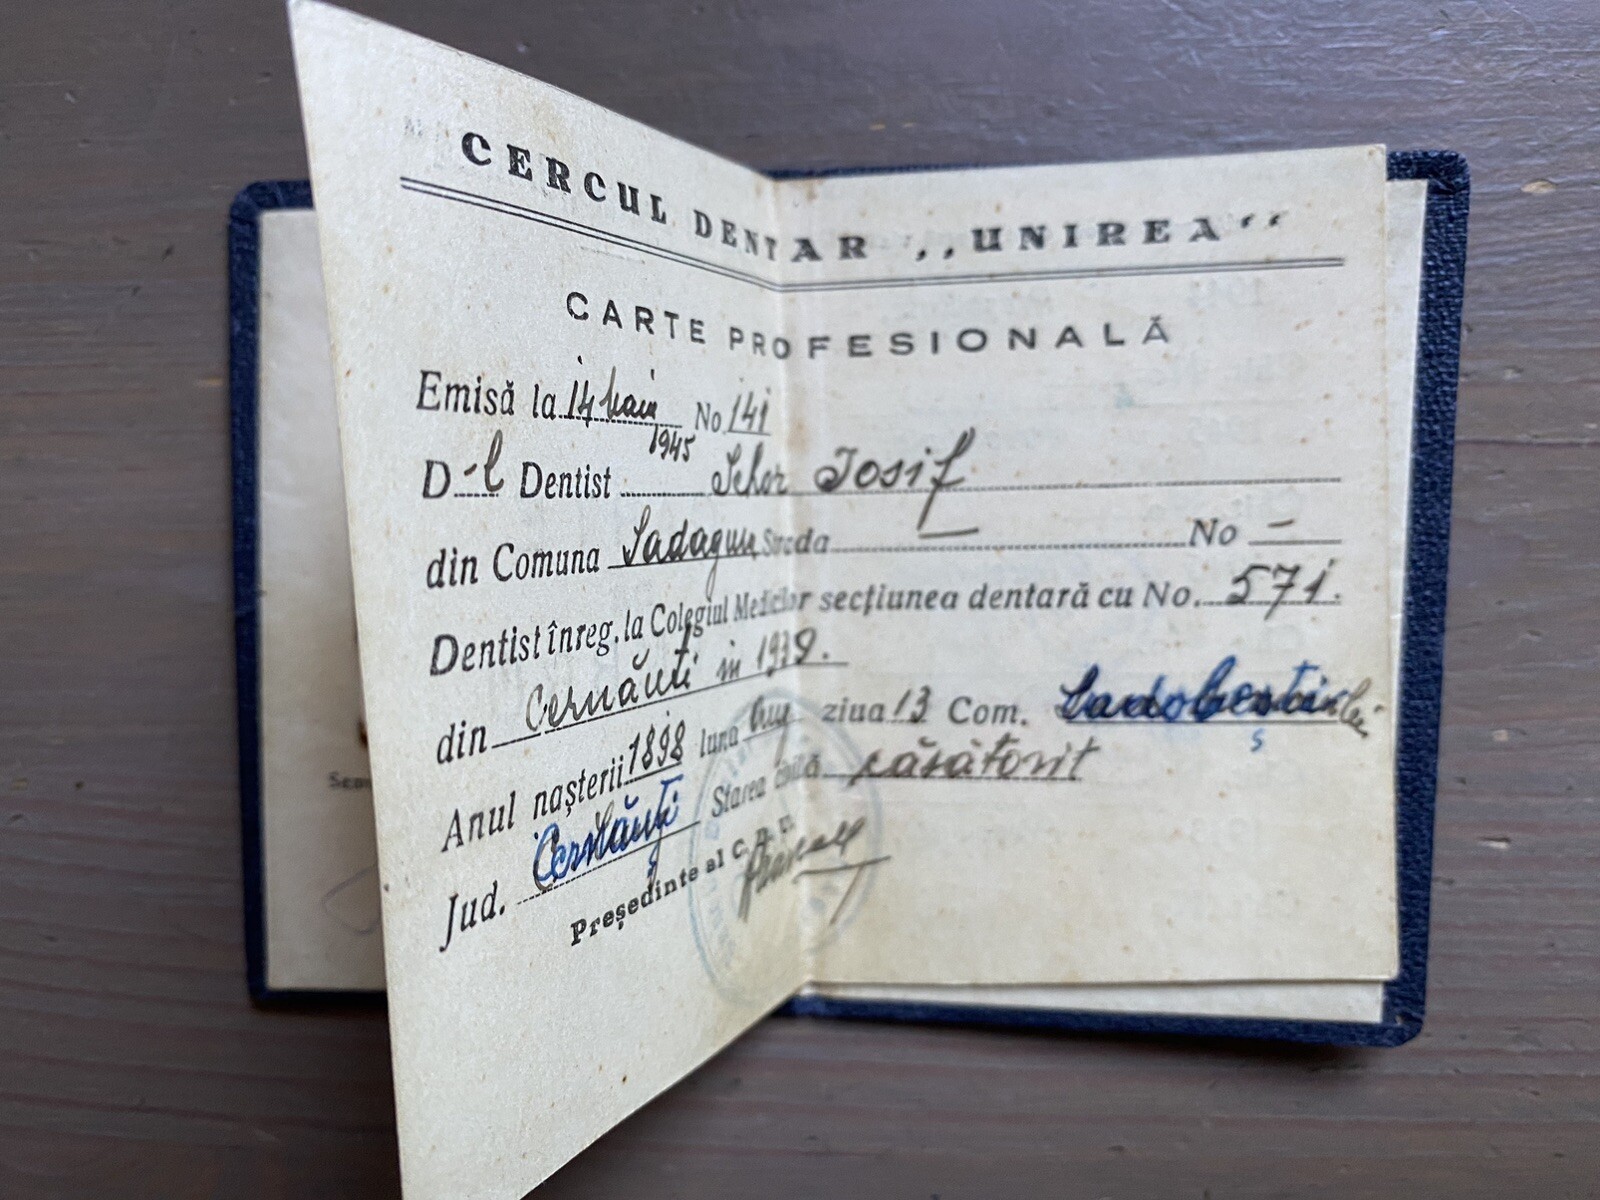 CERCUL DENTAR ,,UNIREA‘‘
CARTE PROFESIONALĂ
Emisă la 14 No 141
1945
D-l Dentist Schor Iosif
din Comuna Strada No –
Dentist înreg. la Colegiul Medicilor secțiunea dentară cu No. 571.
din Cernăuti in 1939.
Anul nașterii 1898 luna ziua 13 Com.
Jud. Cernăuți Starea civilă căsătorit
Președinte al C. D. U.